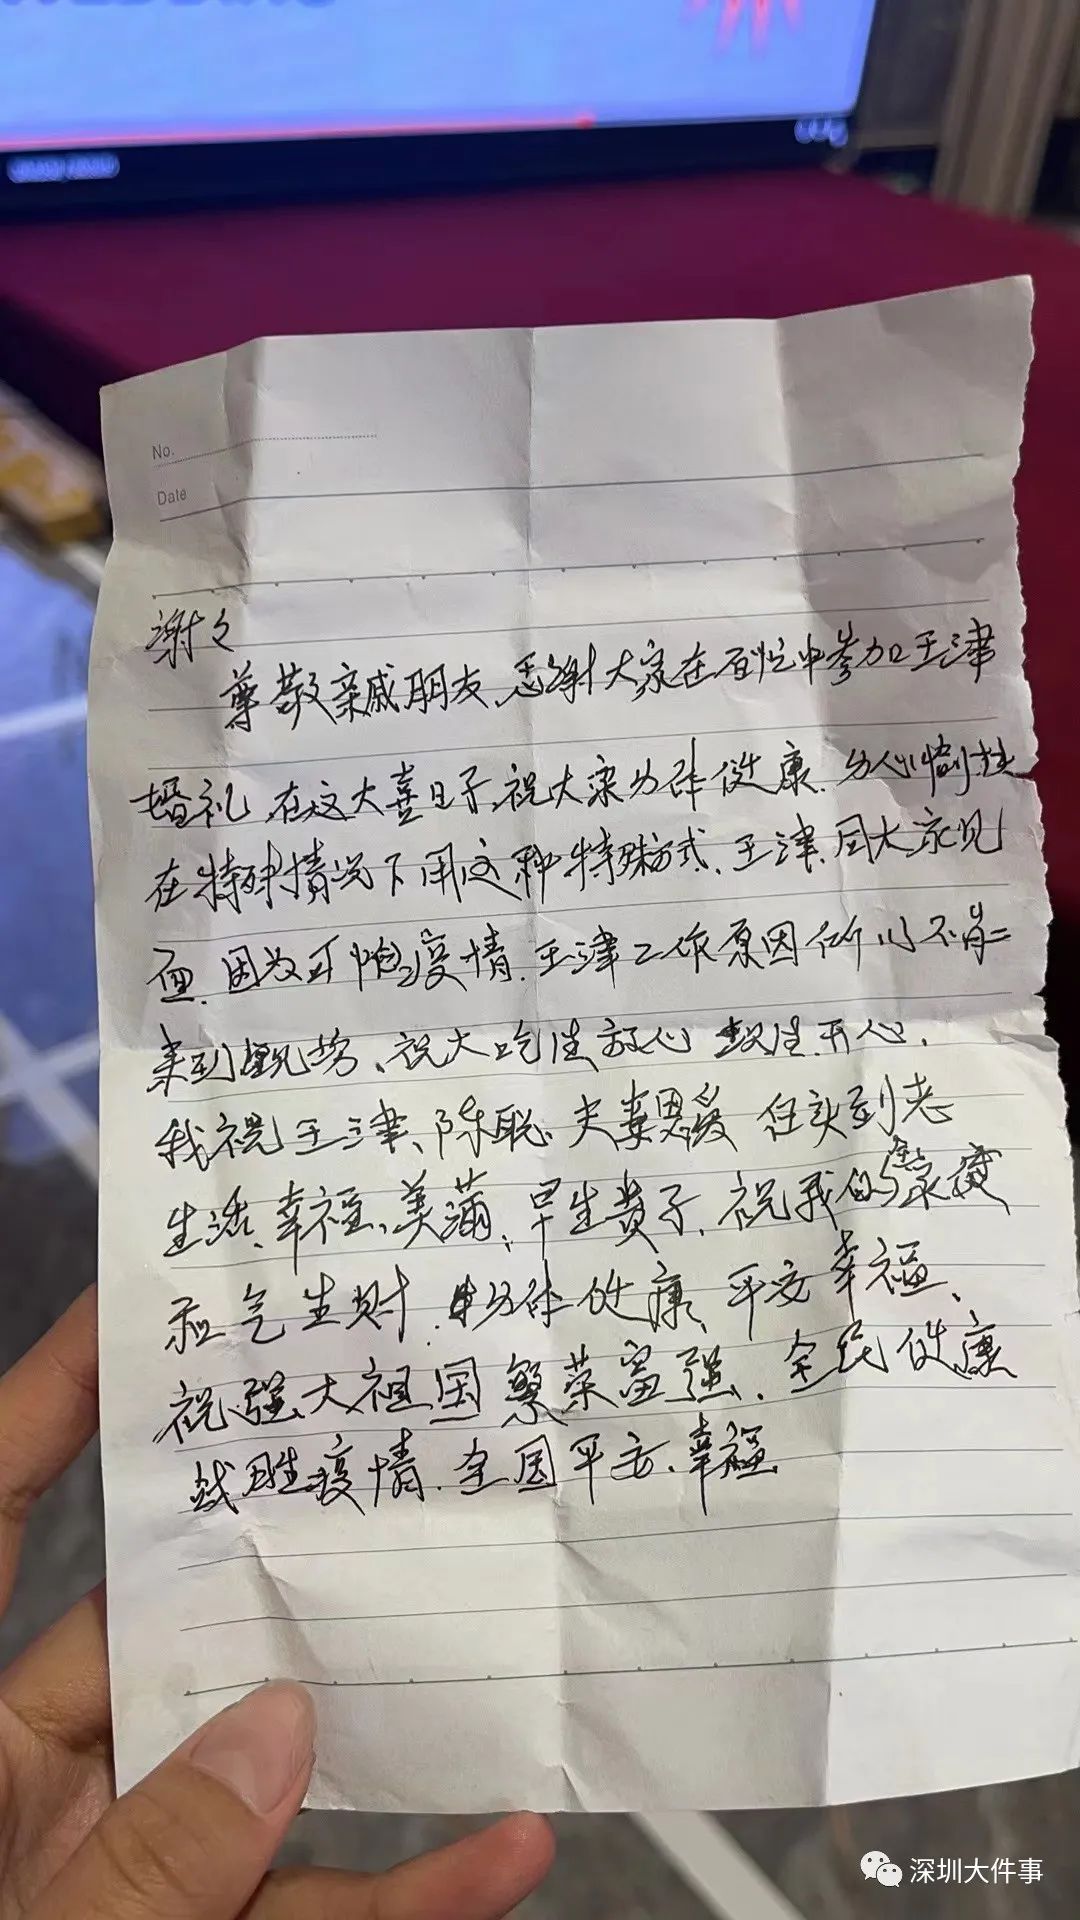 No.
Date
谢々
尊敬亲戚朋友、感谢大家在百忙中参加王津
婚礼、在这大喜日子、祝大家身体健康、身心愉快
在特殊情况下用这种特殊方式、王津、同大家见
面、因为可怕疫情、王津工作原因所以不能
来到现场、祝大吃性放心 开心、
我祝王津、陈聪、夫妻恩爱 白头到老
生活、幸福、美满、早生贵子、祝我的亲戚
和气生财、身体健康、平安幸福、
祝强大祖国繁荣富强、全民健康
战胜疫情、全国平安、幸福
深圳大件事